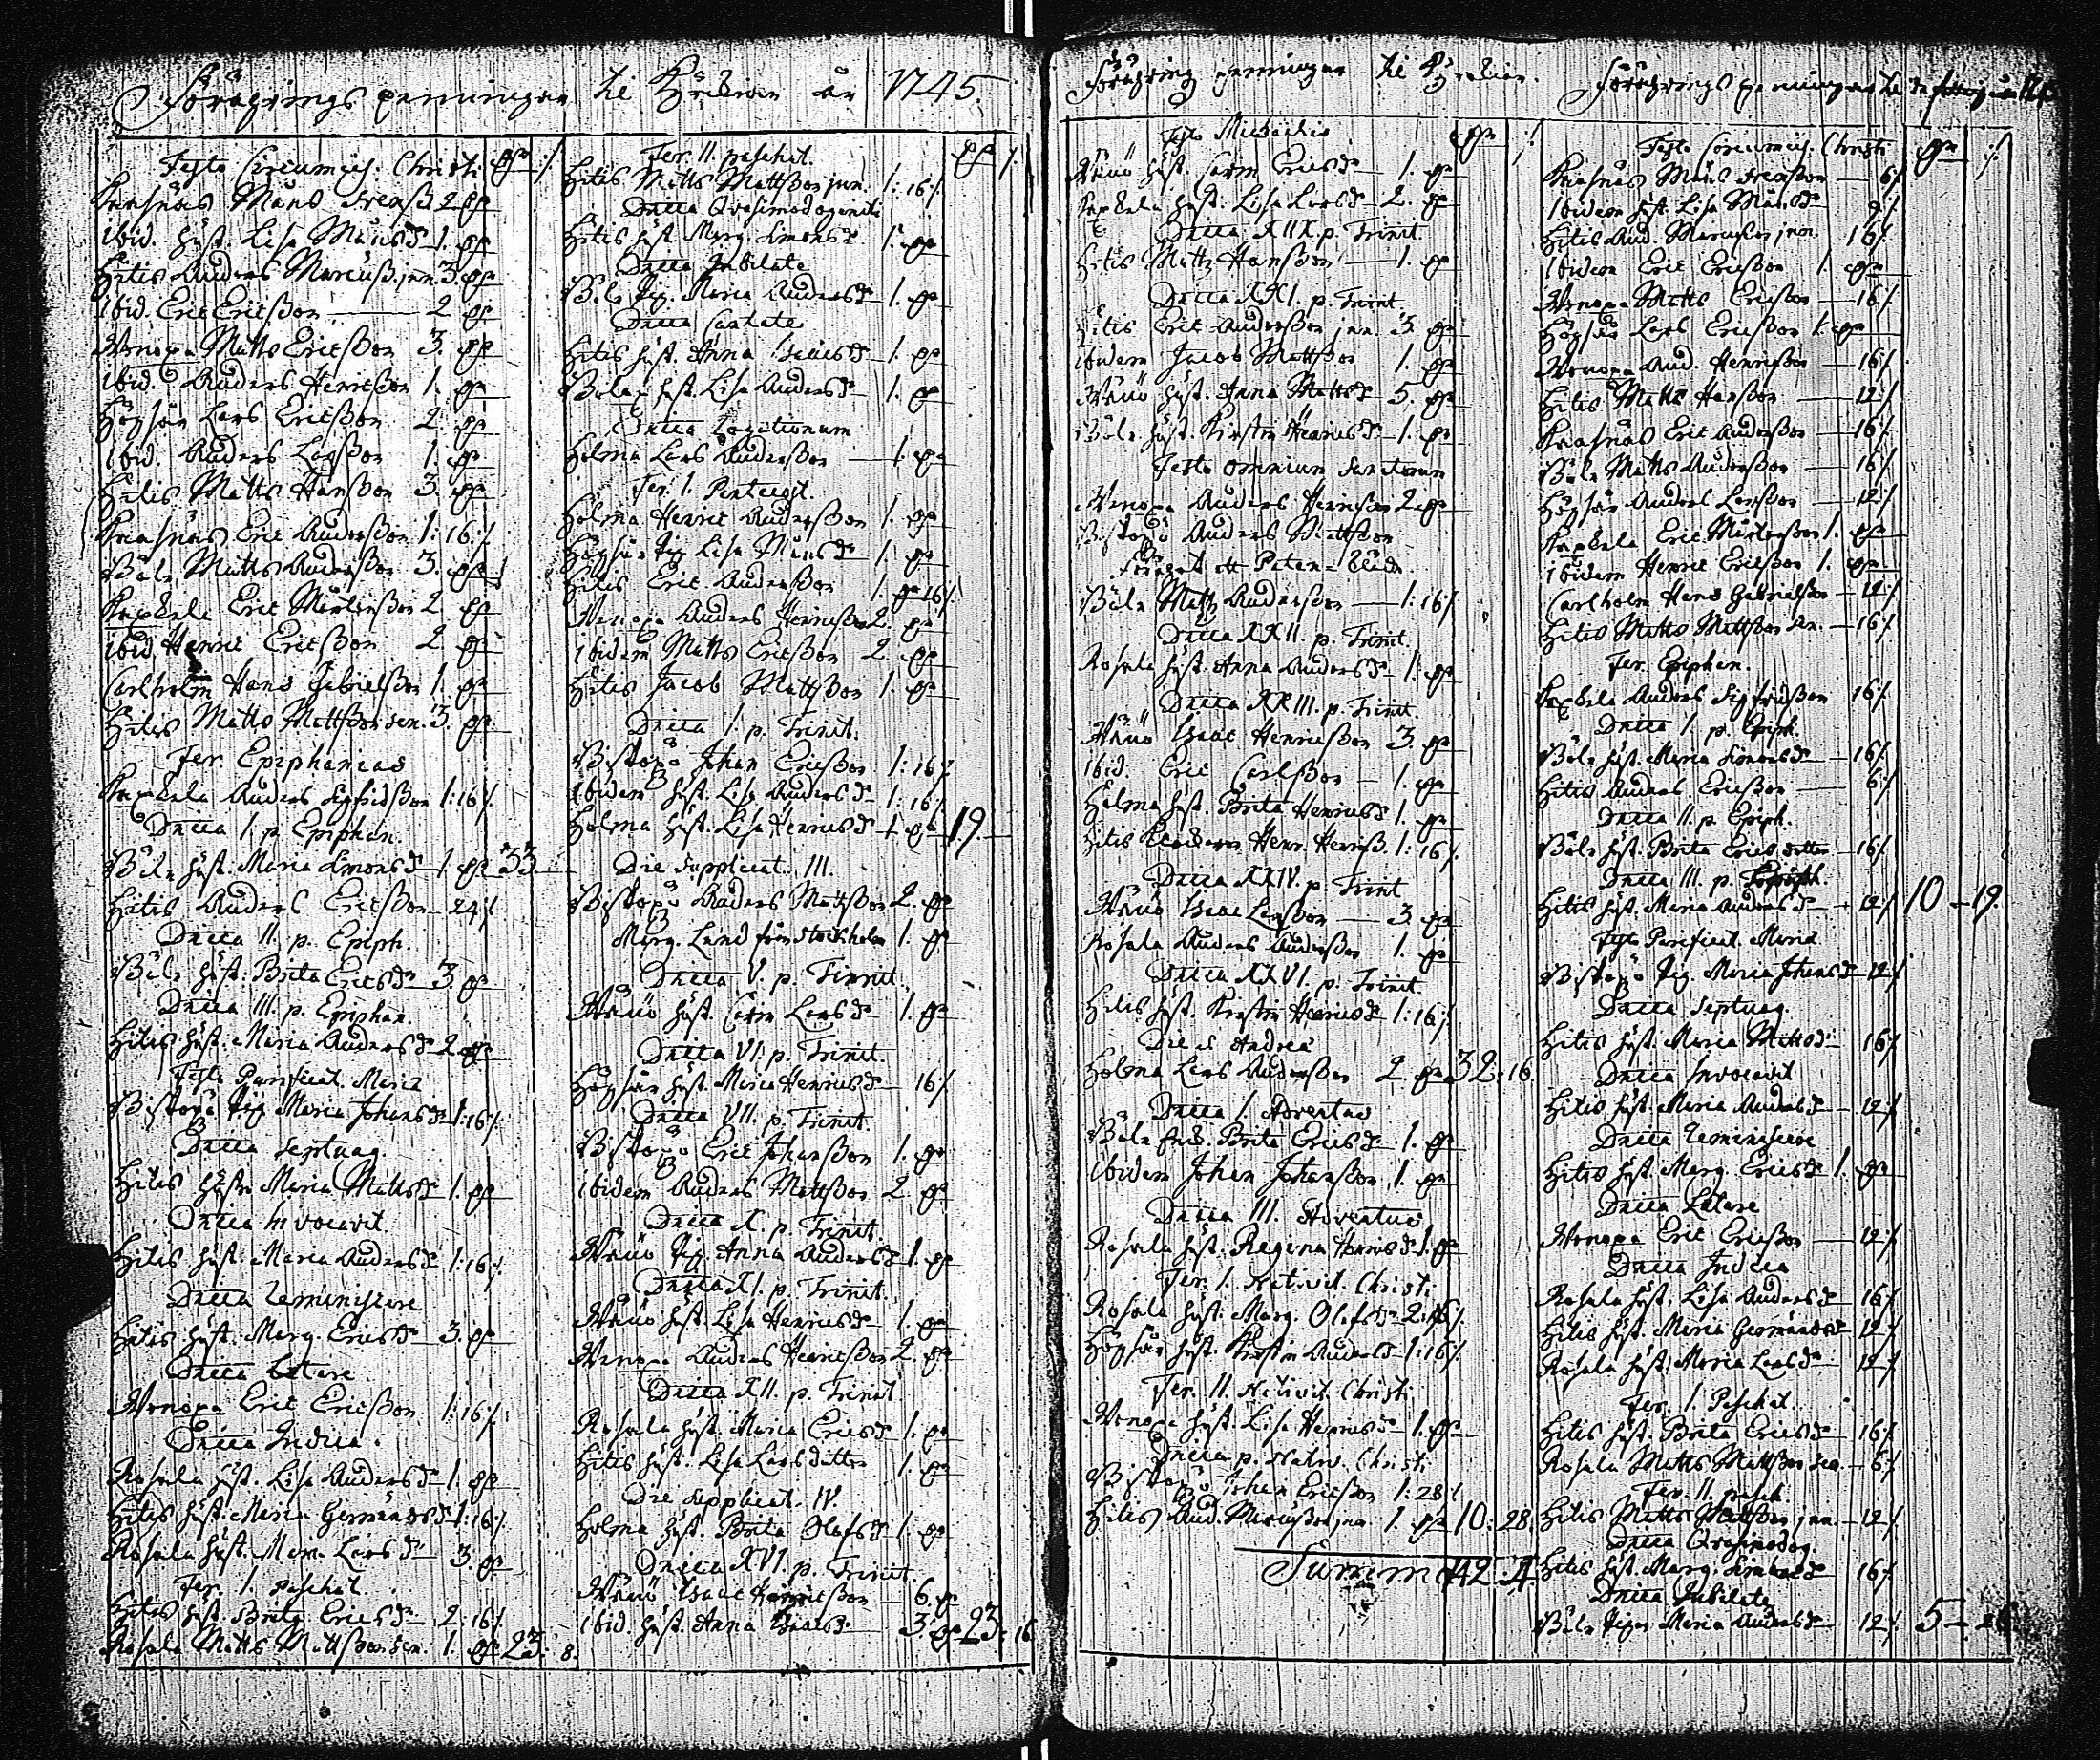 FöräHrings penningar til Kyrckian år 1745.
Festo Circumcis. Christi
Krasnäs Måns Irenss. 2
Ibid. hust. Lisa Månsdr 1.
Hitis Anders Marcuss. jun. 3.
Ibid. Eric Ericsson 2
Wänoxa Matts Ericsson 3.
Ibid. Anders Henricsson 1.
Högsår Lars Ericsson 2.
Ibid. Anders Larsson 1.
Hitis Matts Hansson 3.
Krasnäs Eric Andersson 1:16
Böle Matts Andersson 3.
Kaxkela Eric Mårtensson 2
Ibid. Henric Ericsson 2
Carlholm Hans Gabrielsson 1.
Hitis Matts Mattsson sen. 3.
Fer. Epiphanias
Kaxkela Anders Sigfridsson 1:16
Dnica I. p. Epiphan.
Böle hust. Maria Simonsdr 1 33.
Hitis Anders Ericsson 24
Dnica II. p. Epiph.
Böle hust. Brita Ericsdr 3
Dnica III. p. Epiphan.
Hitis hust. Maria Andersdr 2
Festo Purificat. Mariæ
Bistopö Pig. Maria Johansdr 1:16
Dnica Septuag.
Hitis hustr. Maria Mattsdr 1.
Dnica Invocavit
Hitis hust. Maria Andersdr 1:16
Dnica Reminiscere
Hitis hust. Marg. Ericsdr 3.
Dnica Lætare
Wänoxa Eric Ericsson 1:16
Dnica Judica
Rosala hust. Lisa Andersdr 1
Hitis hust. Maria Germundsdr 1:16
Rosala hust. Mar. Larsdr 3.
Fer. 1. paschat.
Hitis hust. Brita Ericsdr 2:16
Rosala Matts Mattsson sen. 1. 23: 8.
Fer. II. paschat.
Hitis Matts Mattsson jun. 1:16
Dnica Qvasimodogeniti
Hitis hust. Marg. Simonsdr 1.
Dnica Jubilate
Böle Pig. Maria Andersdr 1.
Dnica Cantate
Hitis hust. Anna Isacsdr 1.
Bolax hust. Lisa Andersdr 1.
Dnica Rogationum
Holma Lars Andersson 1.
Fer. 1. Pentecost.
Holma Henric Andersson 1.
Högsår Pig Lisa Månsdr 1.
Hitis Eric Andersson 1. 16
Wänoxa Anders Henricsson 2.
Ibidem Matts Ericsson 2.
Hitis Jacob Mattsson 1.
Dnica 1. p. Trinit.
Bistopö Johan Ericsson 1:16
Ibidem hust. Lisa Andersdr 1:16
Holma hust. Lisa Henricsdr 1 19.
Die Supplicat. III.
Bistopö Anders Mattsson 2.
Marg. Lund från Stockholm 1.
Dnica V. p. Trinit.
Wänö hust. Carin Larsdr 1.
Dnica VI. p. Trinit.
Högsår hust. Maria Henricsdr 16
Dnica VII. p. Trinit.
Bistopö Eric Johansson 1.
Ibidem Anders Mattsson 2
Dnica X. p. Trinit.
Wänö Pig. Anna Andersdr 1.
Dnica XI. p. Trinit.
Wänö hust. Lisa Henricsdr 1.
Wänoxa Anders Henricsson 2.
Dnica XII. p. Trinit
Rosala hust. Maria Ericsdr 1.
Hitis hust. Lisa Larsdotter 1.
Die Supplicat. IV.
Holma hust. Brita Olofsdr 1.
Dnica XVI. p. Trinit
Wänö Isaac Henricsson 6.
Ibid. hust. Anna Isaacsdr 3. 23: 16
Föräring penningar til Kyrckian.
Festo Michaelis
Wänö hust. Carin Ericsdr 1.
Kaxkela hust. Lisa Larsdr 2.
Dnica XIX. p. Trinit.
Hitis Matts Hansson 1.
Dnica XXI. p. Trinit.
Hitis Eric Andersson jun. 3.
Ibidem Jacob Mattsson 1.
Wänö hust. Anna Mattsdr 5.
Böle hust. Kirstin Henricsdr 1.
Festo Omnium Sanctorum
Wänoxa Anders Henricsson 2
Bistopö Anders Mattsson
Förärt ett Paten-kläde
Böle Matts Andersson 1:16
Dnica XXII. p. Trinit.
Rosala hust. Anna Andersdr 1.
Dnica XXIII. p. Trinit.
Wänö Isaac Henricsson 3.
Ibid. Eric Carlsson 1.
Holma hust. Brita Henricsdr 1.
Hitis Henr. Henricss. 1:16
Dnica XXIV. p. Trinit
Wänö Isaac Larsson 3.
Rosala Anders Andersson 1.
Dnica XXVI. p. Trinit.
Hitis hust. Kirstin Henricsdr 1:16
Die S. Andreæ
Holma Lars Andersson 2. 32: 16
Dnica 1. Adventus
Böle Brita Ericsdr 1.
Ibidem Johan Johansson 1.
Dnica III. Adventus
Rosala hust. Regina Henricsdr 1.
Fer. 1. Nativit. Christi
Rosala hust. Marg. Olofsdr 2:16
Högsår hust. Kirstin Andersdr 1:16
Fer. II. Nativit. Christi
Wänoxa hust. Lisa Henricsdr 1.
Dnica p. Nativ. Christi
Bistopö Johan Ericsson 1:28
Hitis And. Marcusson jun. 1. 10: 28.
Summa 142: 4
Föräringspenningar til de fattiga
Festo Circumcis. Christi
Krasnäs Måns Irensson 6
Ibidem hust. Lisa Månsdr 9
Hitis And. Marcusson jun. 16
Ibidem Eric Ericsson 1.
Wänoxa Matts Ericsson 16
Högsår Lars Ericsson 1.
Wänoxa And. Henricsson 16
Hitis Matts Hansson 12
Krasnäs Eric Andersson 16
Böle Matts Andersson 16
Högsår Anders Larsson 12
Kaxkela Eric Mårtensson 1.
Ibidem Henric Ericsson 1.
Carlholm Hans Gabrielsson 12
Hitis Matts Mattsson sen. 16
Fer. Epiphan.
Kaxkela Anders Sigfridsson 16
Dnica 1. p. Epiph.
Böle hust. Maria Simonsdr 16
Hitis Anders Ericsson 6
Dnica II. p. Epiph.
Böle hust. Brita Ericsdotter 16
Dnica III. p. Epiph.
Hitis hust. Maria Andersdr 12 10 - 19.
Festo Purificat. Mariæ
Bistopö Pig. Maria Johansdr 12
Dnica Septuag.
Hitis hust. Maria Mattsdr 16
Dnica Invocavit
Hitis hust. Maria Andersdr 12
Dnica Reminiscere
Hitis hust. Marg. Ericsdr 1.
Dnica Lætare
Wänoxa Eric Ericsson 12
Dnica Judica
Rosala hust. Lisa Andersdr 16
Hitis hust. Maria Germundsdr 12
Rosala hust. Maria Larsdr 12
Fer. 1. Paschat.
Hitis hust. Brita Ericsdr 16
Rosala Matts Mattsson sen. 6
Fer. II. pasch.
Hitis Matts Mattsson jun. 12
Dnica Qvasimodog.
Hitis hust. Marg. Simonsdr 16
Dnica Jubilate
Böle Pigan Maria Andersdr 12 5 - 26